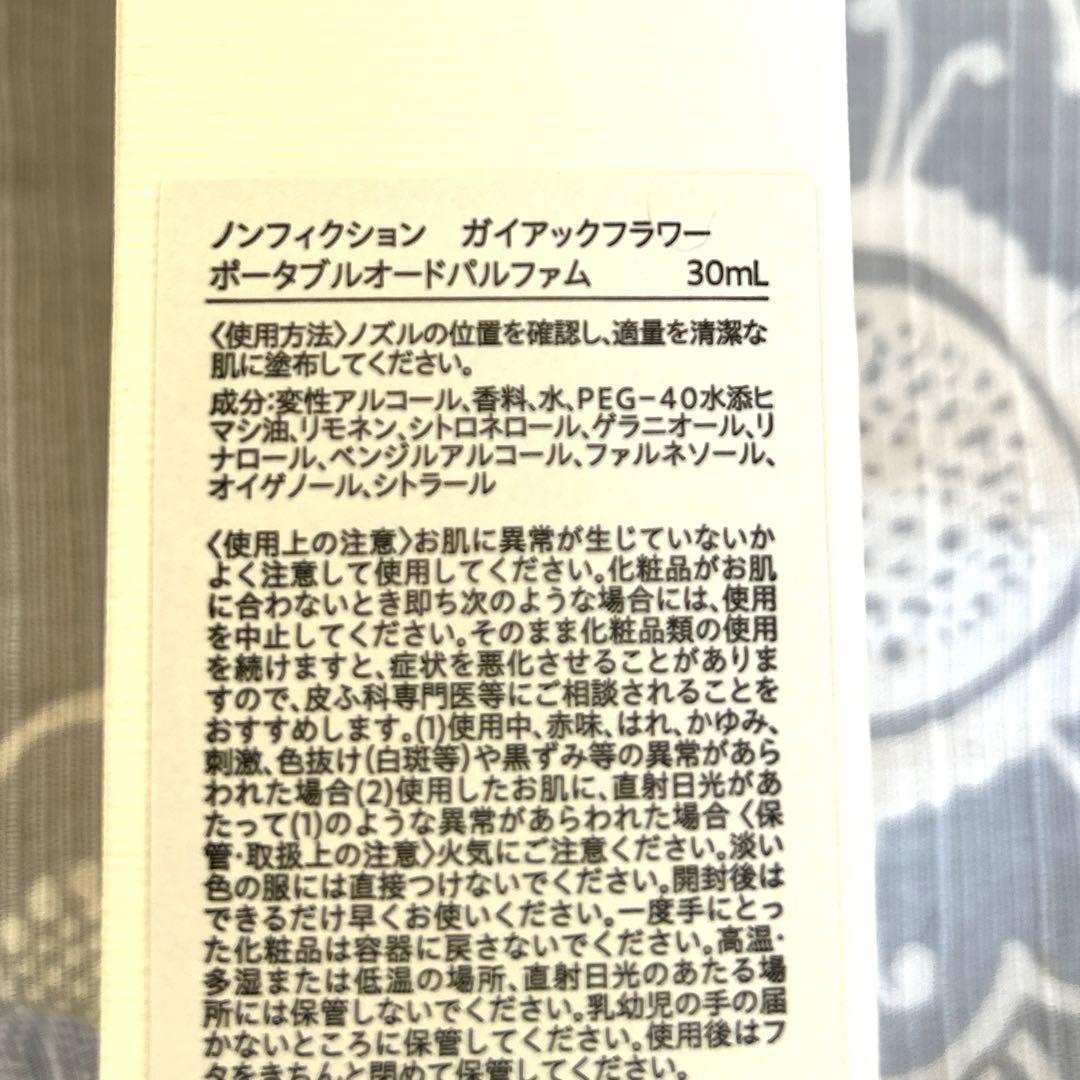 ノンフィクション　ガイアックフラワー
ポータブルオードパルファム　30mL
〈使用方法〉ノズルの位置を確認し、適量を清潔な
肌に塗布してください。
成分:変性アルコール、香料、水、PEG-40水添ヒ
マシ油、リモネン、シトロネロール、ゲラニオール、リ
ナロール、ベンジルアルコール、ファルネソール、
オイゲノール、シトラール
〈使用上の注意〉お肌に異常が生じていないか
よく注意して使用してください。化粧品がお肌
に合わないとき即ち次のような場合には、使用
を中止してください。そのまま化粧品類の使用
を続けますと、症状を悪化させることがありま
すので、皮ふ科専門医等にご相談されることを
おすすめします。(1)使用中、赤味、はれ、かゆみ、
刺激、色抜け(白斑等)や黒ずみ等の異常があら
われた場合(2)使用したお肌に、直射日光があ
たって(1)のような異常があらわれた場合〈保
管・取扱上の注意〉火気にご注意ください。淡い
色の服には直接つけないでください。開封後は
できるだけ早くお使いください。一度手にとっ
た化粧品は容器に戻さないでください。高温・
多湿または低温の場所、直射日光のあたる場
所には保管しないでください。乳幼児の手の届
かないところに保管してください。使用後はフ
タをきちんと閉めて保管してください。